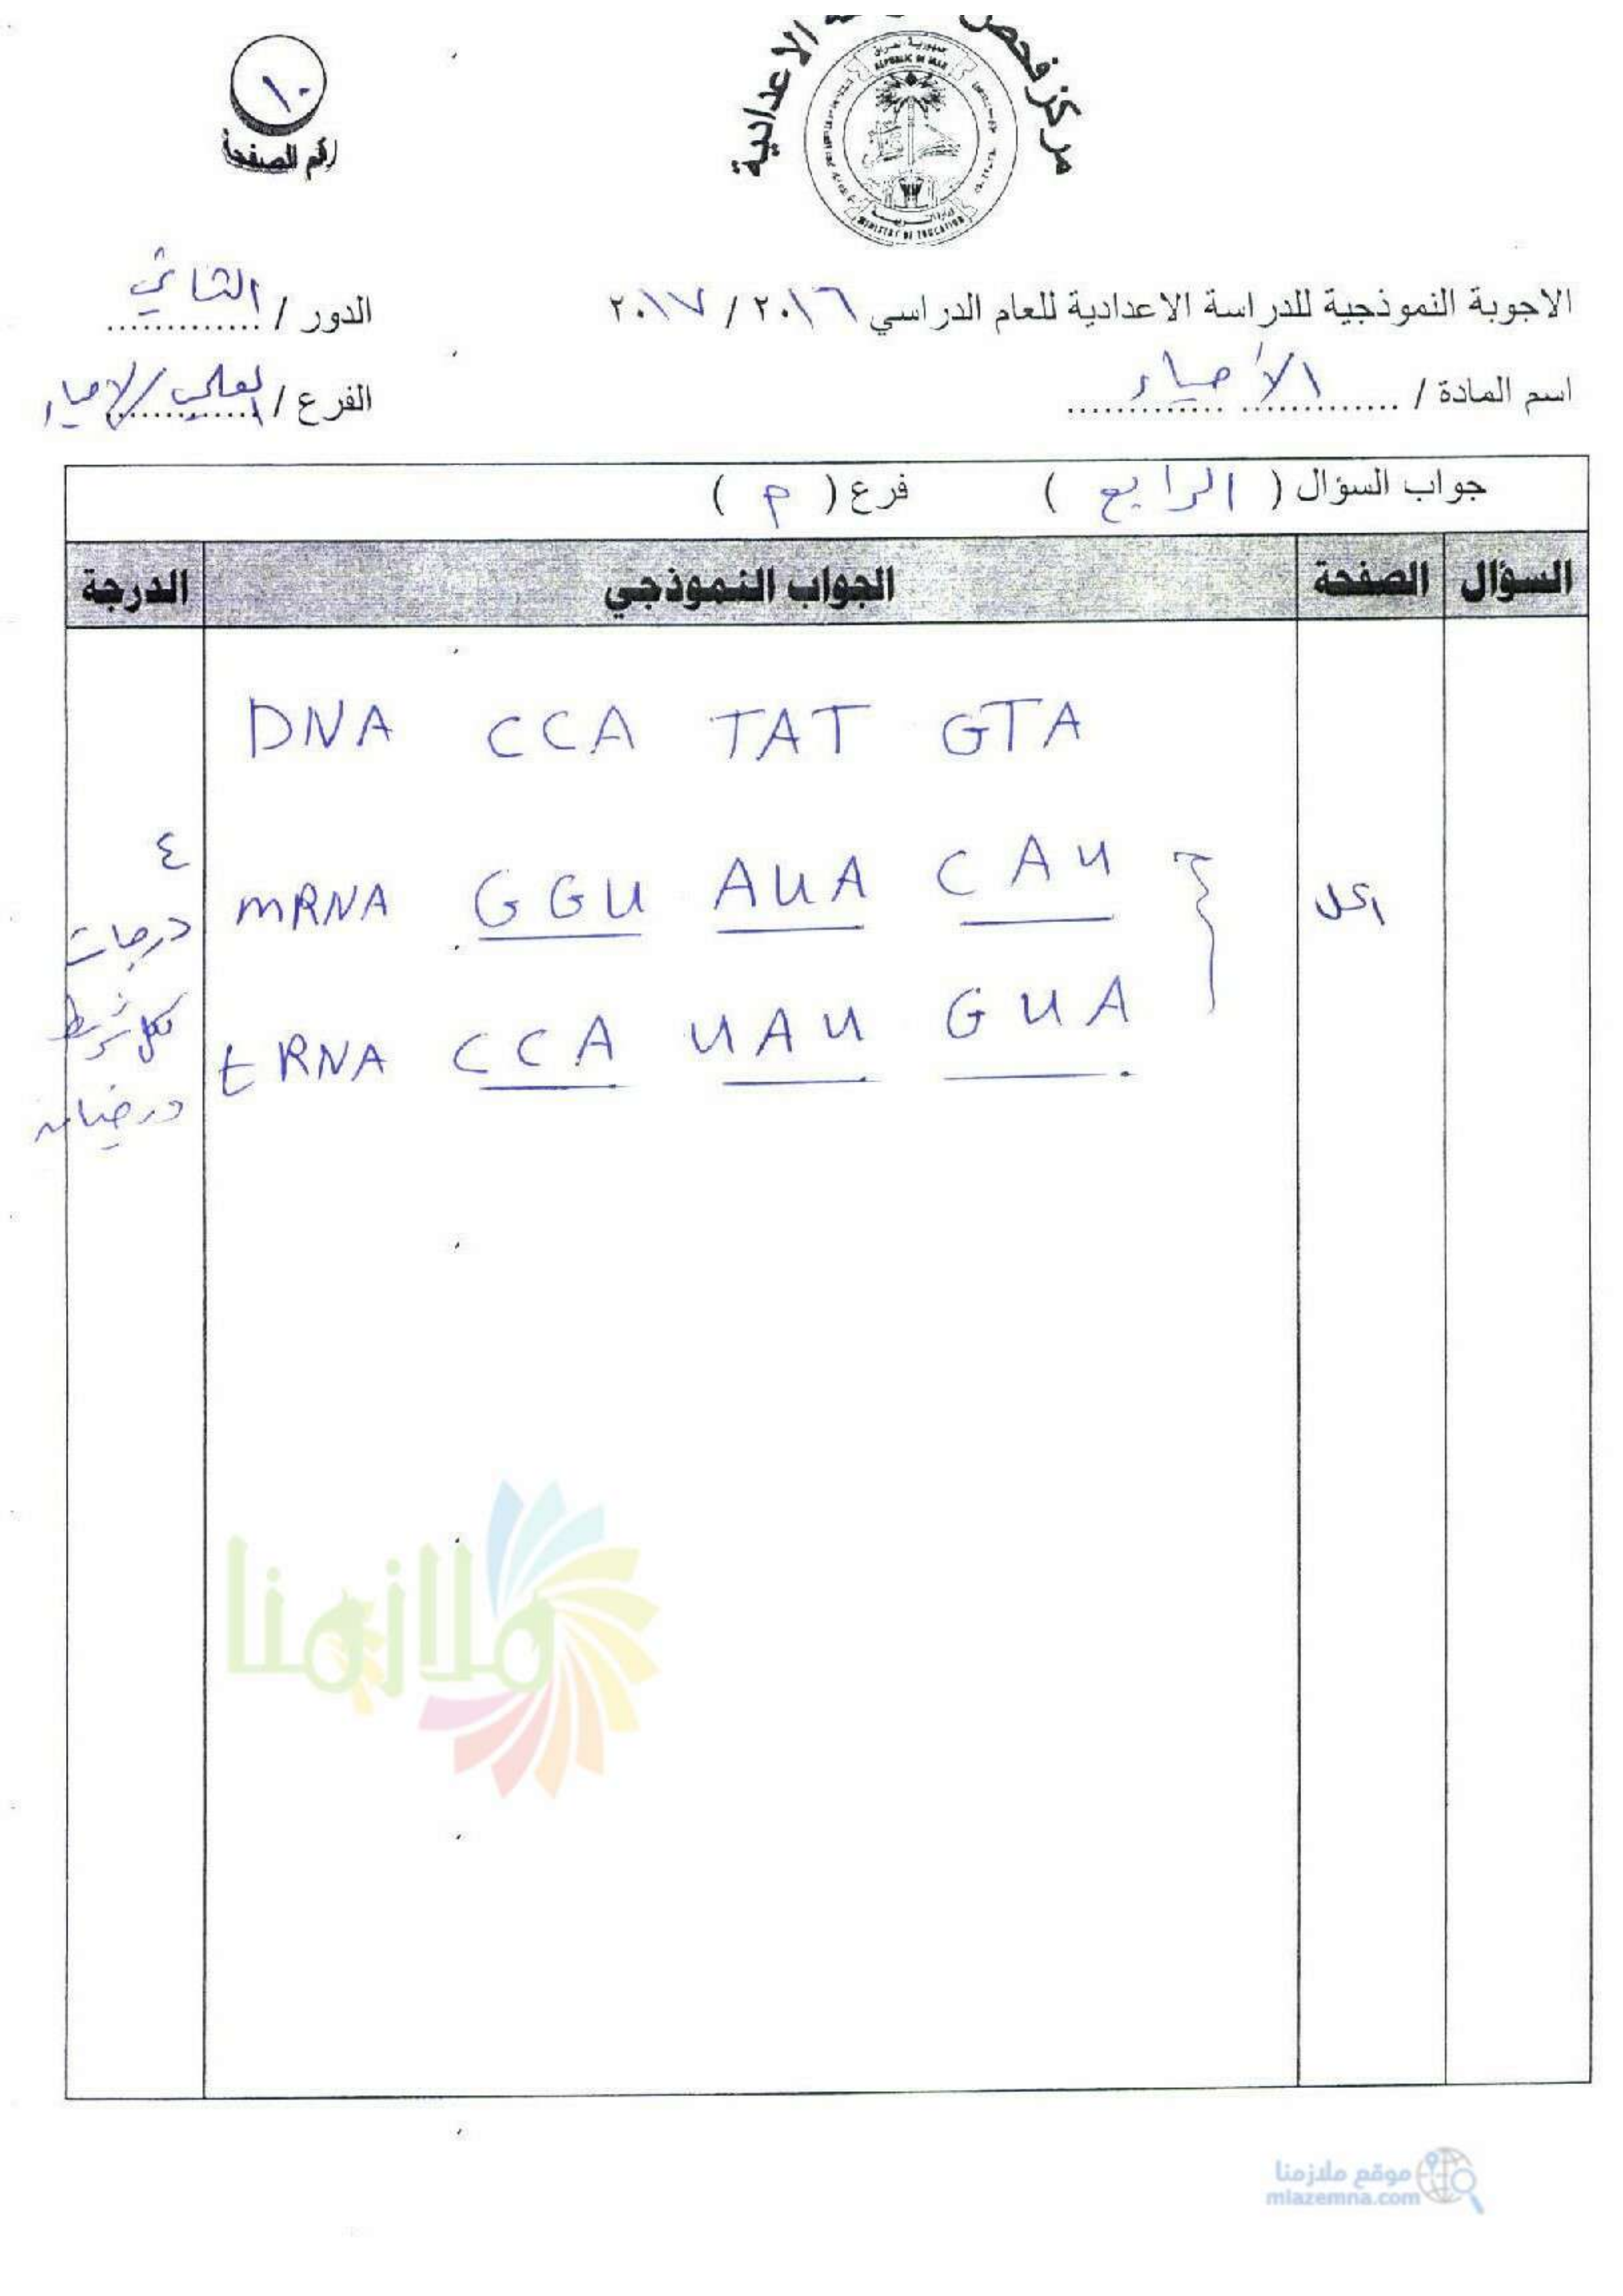 ١٠
رقم الصفحة
مركز فحص الاعدادية
جمهورية العراق
REPUBLIC OF IRAQ
MINISTRY OF EDUCATION
الاجوبة النموذجية للدراسة الاعدادية للعام الدراسي ٢٠١٦ / ٢٠١٧ الدور / الثاني
اسم المادة / الأحياء الفرع / العلمي/الاحياء
جواب السؤال ( الرابع ) فرع ( م )
السؤال الصفحة الجواب النموذجي الدرجة
DNA CCA TAT GTA
mRNA GGU AUA CAU
tRNA CCA UAU GUA
٤
درجات
لكل شريط
درجتان
ملازمنا
موقع ملازمنا
mlazemna.com